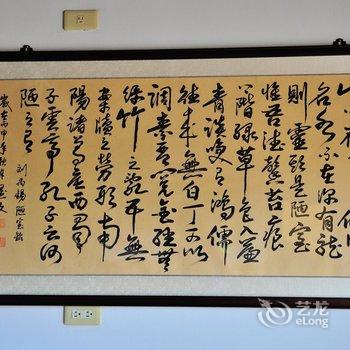 名水不在深有龍
則靈斯是陋室
惟吾德馨苔痕
上階綠草色入簾
青談笑有鴻儒
往來無白丁可以
調素琴閱金經無
絲竹之亂耳無
案牘之勞形南
陽諸葛廬西蜀
子雲亭孔子云何
陋之有
劉禹錫 陋室銘
艺龙
eLong.com